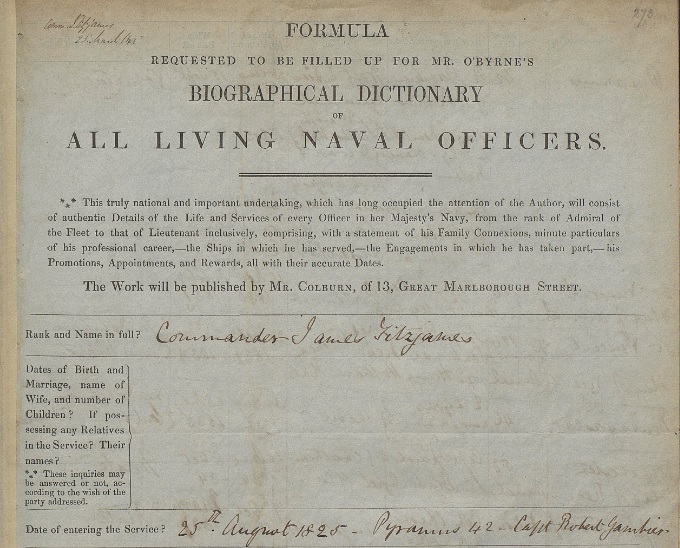 273
FORMULA
REQUESTED TO BE FILLED UP FOR MR. O'BYRNE'S
BIOGRAPHICAL DICTIONARY
OF
ALL LIVING NAVAL OFFICERS.
*⁎* This truly national and important undertaking, which has long occupied the attention of the Author, will consist
of authentic Details of the Life and Services of every Officer in her Majesty's Navy, from the rank of Admiral of
the Fleet to that of Lieutenant inclusively, comprising, with a statement of his Family Connexions, minute particulars
of his professional career,—the Ships in which he has served,—the Engagements in which he has taken part,—his
Promotions, Appointments, and Rewards, all with their accurate Dates.
The Work will be published by MR. COLBURN, of 13, GREAT MARLBOROUGH STREET.
Rank and Name in full? Commander James Fitzjames
Dates of Birth and
Marriage, name of
Wife, and number of
Children? If pos-
sessing any Relatives
in the Service? Their
names?
*⁎* These inquiries may
be answered or not, ac-
cording to the wish of the
party addressed.
Date of entering the Service? 25th August 1825 - Pyramus 42 - Capt Robert Gambier